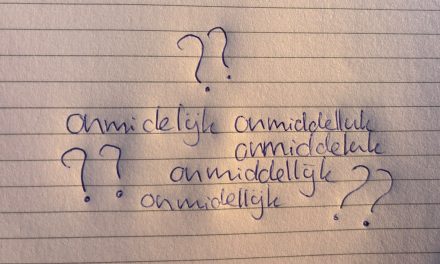 ??
onmidelijk onmiddelluk
onmiddeluk
?? onmiddellijk
onmidellijk ??